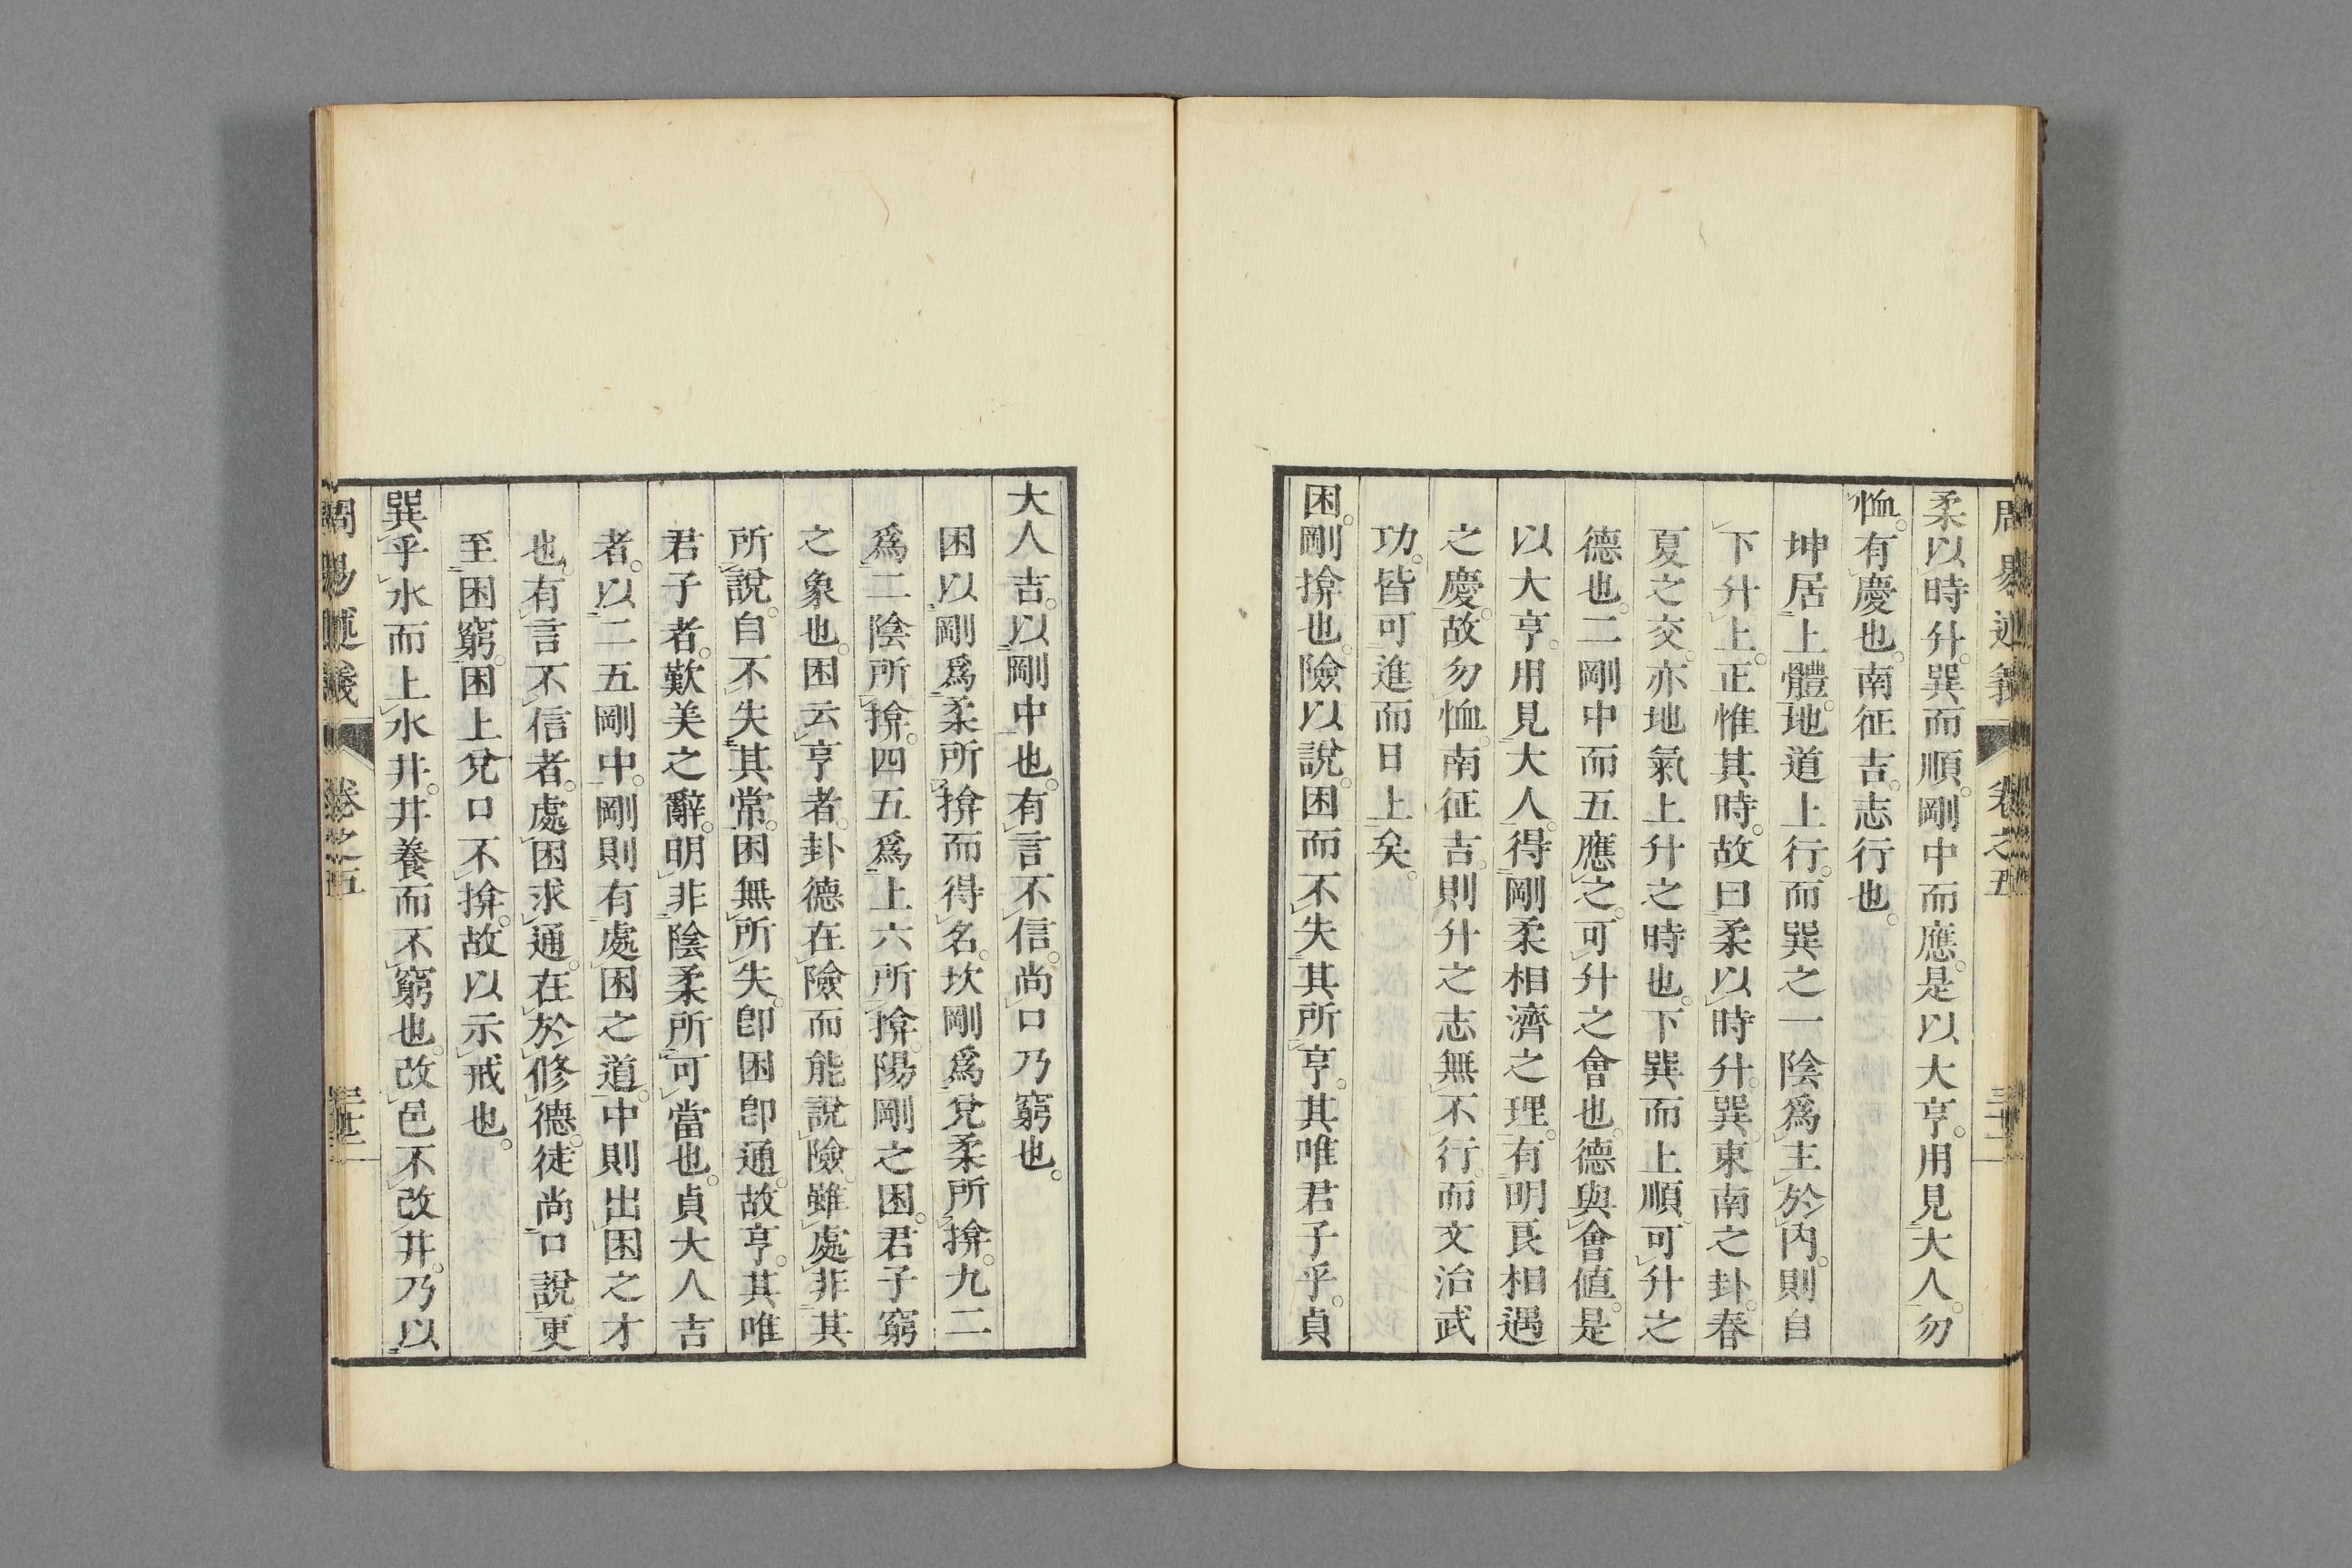 周易述義 卷之五
柔以時升。巽而順。剛中而應。是以大亨。用見大人。勿
恤。有慶也。南征吉。志行也。
坤居上體。地道上行。而巽之一陰爲主於內。則自
下升上。正惟其時。故曰柔以時升。巽東南之卦。春
夏之交。亦地氣上升之時也。下巽而上順。可升之
德也。二剛中而五應之。可升之會也。德與會値。是
以大亨。用見大人。得剛柔相濟之理。有明良相遇
之慶。故勿恤。南征吉。則升之志無不行。而文治武
功。皆可進而日上矣。
困。剛揜也。險以說。困而不失其所亨。其唯君子乎。貞
大人吉。以剛中也。有言不信。尚口乃窮也。
困以剛爲柔所揜而得名。坎剛爲兌柔所揜。九二
爲二陰所揜。四五爲上六所揜。陽剛之困。君子窮
之象也。困云亨者。卦德在險而能說險。雖處非其
所說。自不失其常。困無所失。卽困卽通。故亨。其唯
君子者。歎美之辭。明非陰柔所可當也。貞大人吉
者。以二五剛中。剛則有處困之道。中則出困之才
也。有言不信者。處困求通。在於修德。徒尚口說。更
至困窮。困上兌口不揜。故以示戒也。
巽乎水而上水井。井養而不窮也。改邑不改井。乃以
周易述義 卷之五